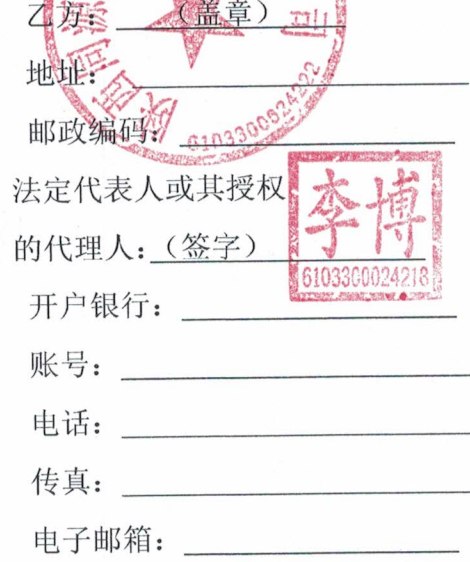 乙方:（盖章）
地址:
邮政编码:
6103300624222
法定代表人或其授权
李博
的代理人:（签字）
6103300024218
开户银行:
账号:
电话:
传真:
电子邮箱: